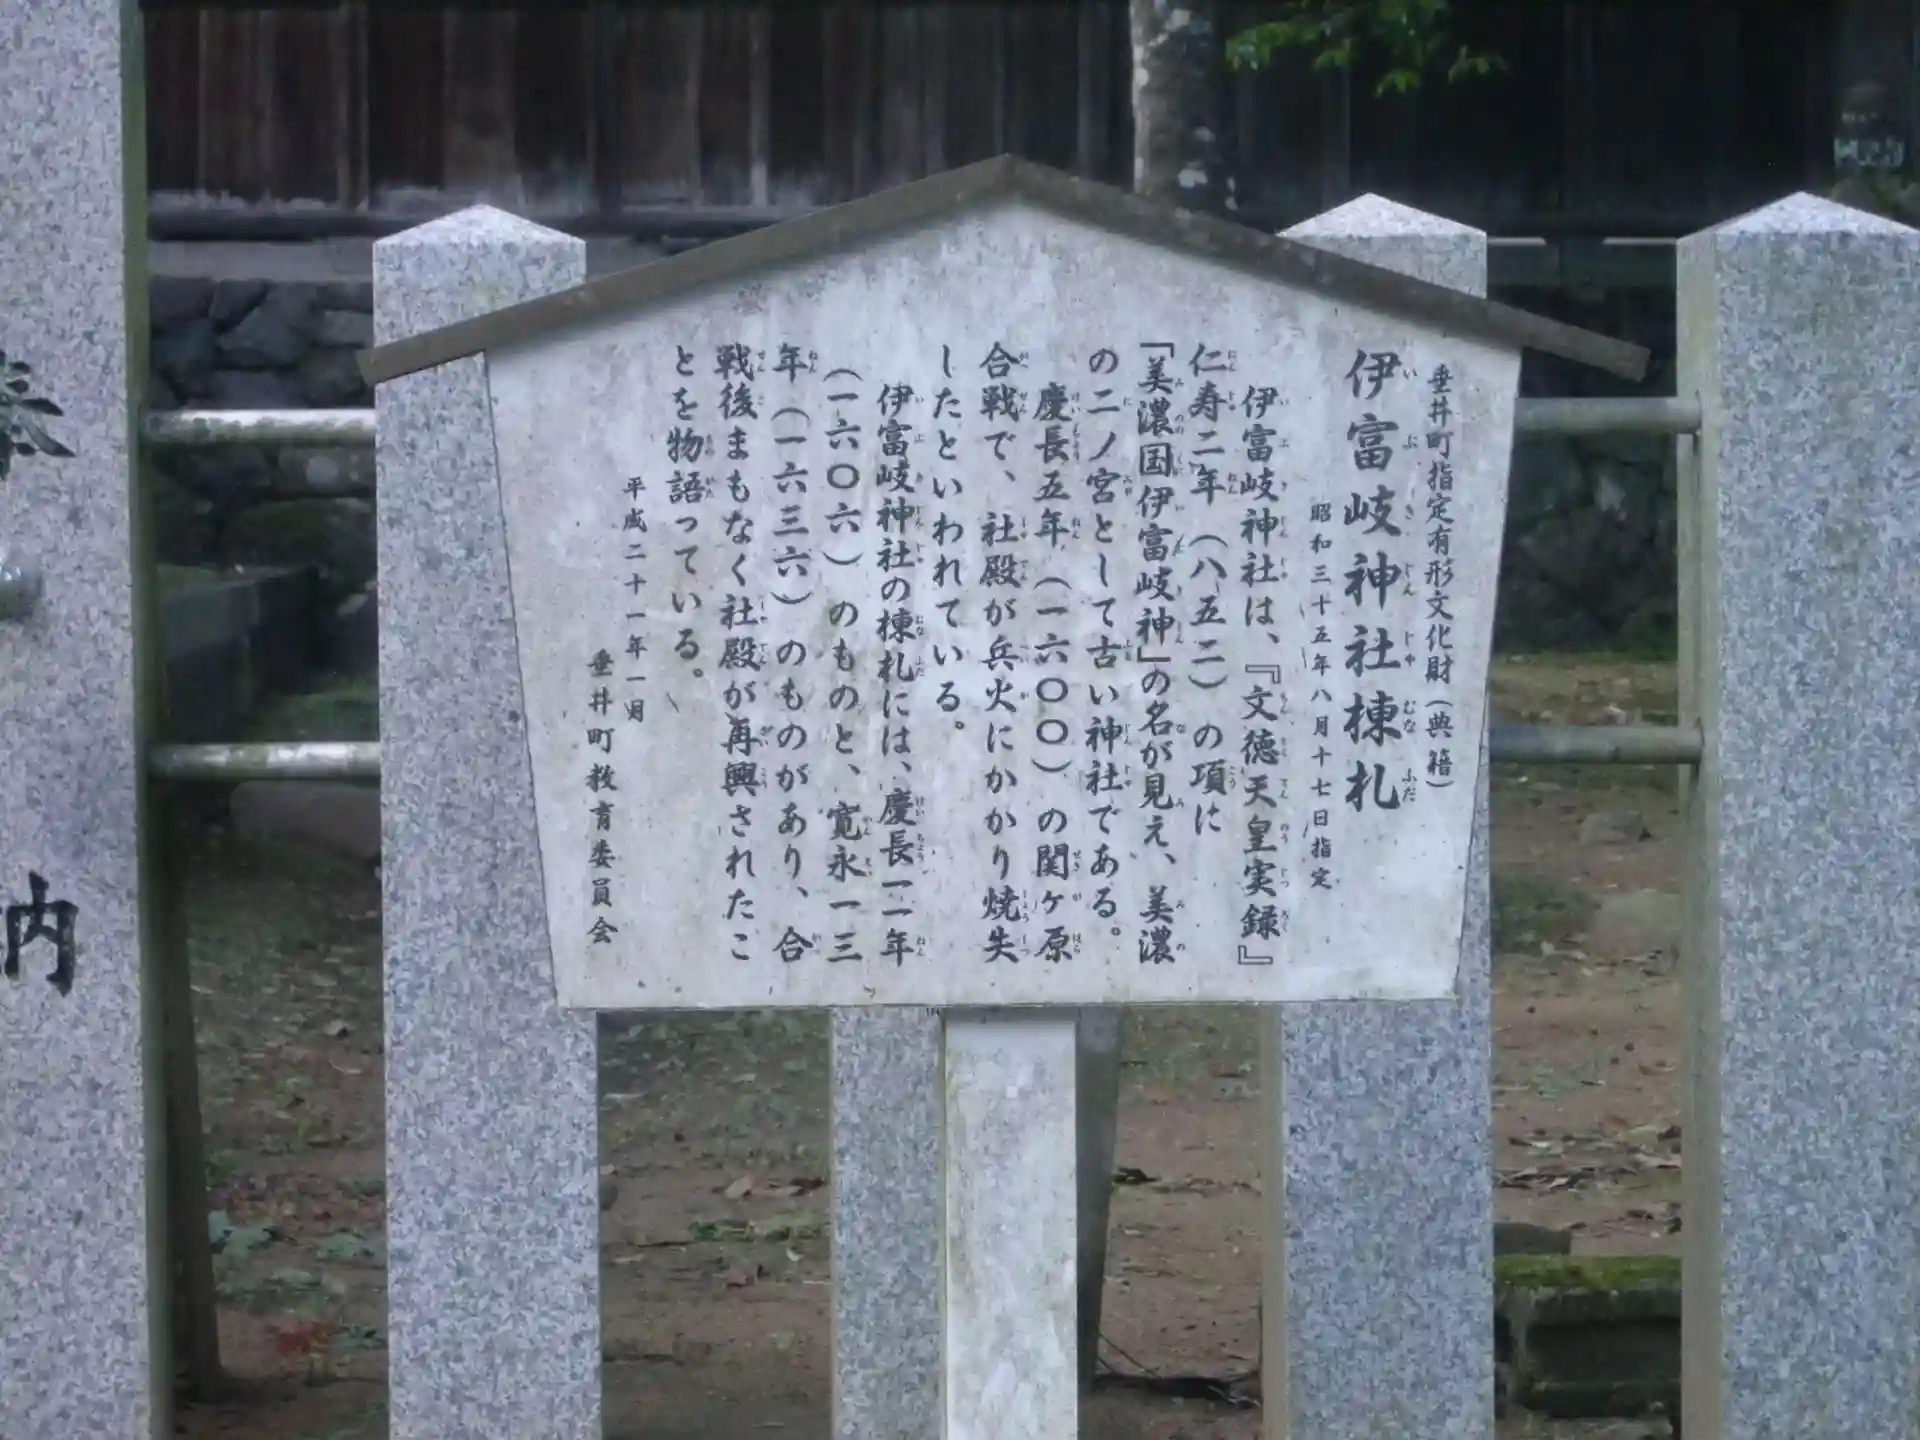 垂井町指定有形文化財（典籍）
伊富岐神社棟札
昭和三十五年八月十七日指定
伊富岐神社は、『文徳天皇実録』
仁寿二年（八五二）の項に
「美濃国伊富岐神」の名が見え、美濃
の二ノ宮として古い神社である。
慶長五年（一六〇〇）の関ヶ原
合戦で、社殿が兵火にかかり焼失
したといわれている。
伊富岐神社の棟札には、慶長一一年
（一六〇六）のものと、寛永一三
年（一六三六）のものがあり、合
戦後まもなく社殿が再興されたこ
とを物語っている。
平成二十一年一月
垂井町教育委員会
奉納